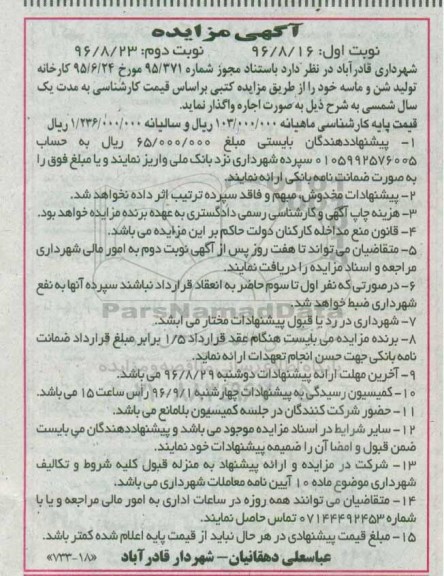 آگهی مزایده
نوبت اول: ۹۶/۸/۱۶ نوبت دوم: ۹۶/۸/۲۳
شهرداری قادرآباد در نظر دارد باستناد مجوز شماره ۹۵/۳۷۱ مورخ ۹۵/۶/۲۴ کارخانه
تولید شن و ماسه خود را از طریق مزایده کتبی براساس قیمت کارشناسی به مدت یک
سال شمسی به شرح ذیل به صورت اجاره واگذار نماید.
قیمت پایه کارشناسی ماهیانه ۱۰۳/۰۰۰/۰۰۰ ریال و سالیانه ۱/۲۳۶/۰۰۰/۰۰۰ ریال
۱- پیشنهاددهندگان بایستی مبلغ ۶۵/۰۰۰/۰۰۰ ریال به حساب
۰۱۰۵۹۹۲۵۷۶۰۰۵ سپرده شهرداری نزد بانک ملی واریز نمایند و یا مبلغ فوق را
به صورت ضمانت نامه بانکی ارائه نمایند.
۲- پیشنهادات مخدوش، مبهم و فاقد سپرده ترتیب اثر داده نخواهد شد.
۳- هزینه چاپ آگهی و کارشناسی رسمی دادگستری به عهده برنده مزایده خواهد بود.
۴- قانون منع مداخله کارکنان دولت حاکم بر این مزایده می باشد.
۵- متقاضیان می تواند تا هفت روز پس از آگهی نوبت دوم به امور مالی شهرداری
مراجعه و اسناد مزایده را دریافت نمایند.
۶- درصورتی که نفر اول تا سوم حاضر به انعقاد قرارداد نباشند سپرده آنها به نفع
شهرداری ضبط خواهد شد.
۷- شهرداری در رد یا قبول پیشنهادات مختار می ابشد.
۸- برنده مزایده می بایست هنگام عقد قرارداد ۱/۵ برابر مبلغ قرارداد ضمانت
نامه بانکی جهت حسن انجام تعهدات ارائه نماید.
۹- آخرین مهلت ارائه پیشنهادات دوشنبه ۹۶/۸/۲۹ می باشد.
۱۰- کمیسیون رسیدگی به پیشنهادات چهارشنبه ۹۶/۹/۱ رأس ساعت ۱۵ می باشد.
۱۱- حضور شرکت کنندگان در جلسه کمیسیون بلامانع می باشد.
۱۲- سایر شرایط در اسناد مزایده موجود می باشد و پیشنهاددهندگان می بایست
ضمن قبول و امضا آن را ضمیمه پیشنهادات خود نمایند.
۱۳- شرکت در مزایده و ارائه پیشنهاد به منزله قبول کلیه شروط و تکالیف
شهرداری موضوع ماده ۱۰ آیین نامه معاملات شهرداری می باشد.
۱۴- متقاضیان می توانند همه روزه در ساعات اداری به امور مالی مراجعه و یا با
شماره ۰۷۱۴۴۴۹۲۴۵۳ تماس حاصل نمایند.
۱۵- مبلغ قیمت پیشنهادی در هر حال نباید از قیمت پایه اعلام شده کمتر باشد.
عباسعلی دهقانیان – شهردار قادرآباد «۷۳۳-۱۸»
ParsNamadData